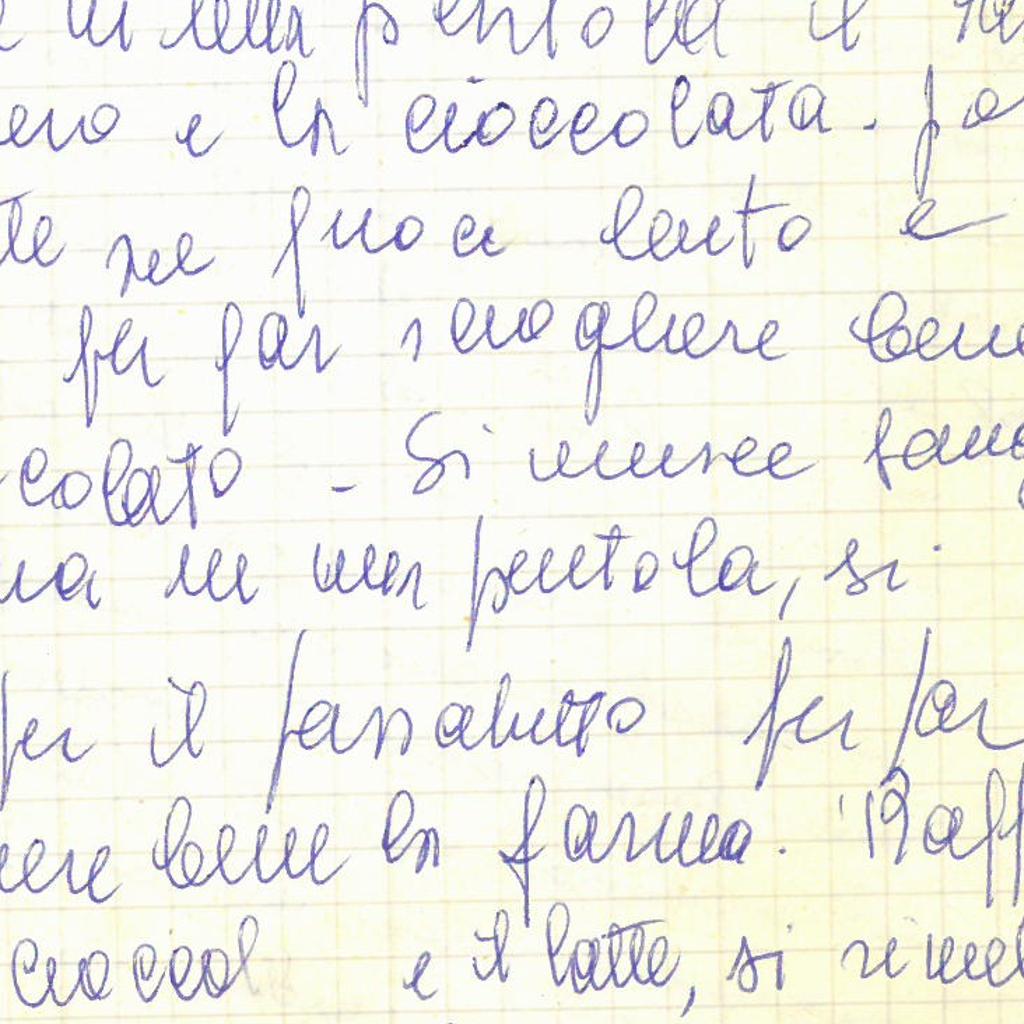 in una pentola il
ero e la cioccolata. Po
te sul fuoco lento e
per far sciogliere bene
colato - Si unisce sang
na in una pentola, si
per il passatutto per far
ere bene la farina. Raff
cioccol e il latte, si rimet